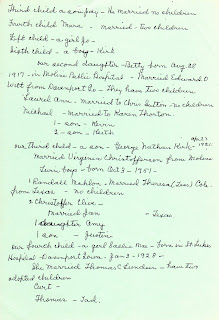 Third child a son Jay - He married no children
Fourth child "Mara" - married - two children
Fifth child - a girl Jo -
Sixth child - a boy - Kirk
Our second daughter - Betty born Aug. 28
1917 - in Moline Public Hospital - Married Edward O
Witt from Davenport Ia - They have two children
Laurel Ann - married to Chris Sutton - no children
Michael - married to Karen Thornton.
1 - son - Kevin
2 - son - Keith
Our third child - a son - George Nathan Kirk -
Married Virginia Christofferson from Moline
boys - born Oct 3 - 1951 -
Randall - Married Theresa (Tess) Cole.
from Texas - no children
2 Christoffer Clive -
married Jan - Texas
1 daughter Amy
1 son - Justin
Our fourth child - a girl Sallie Mae - born in St Lukes
Hospital - Davenport Iowa - Jan 3 - 1928 -
She married Thomas C - have two
adopted children
Curt -
Thomas - Tad.